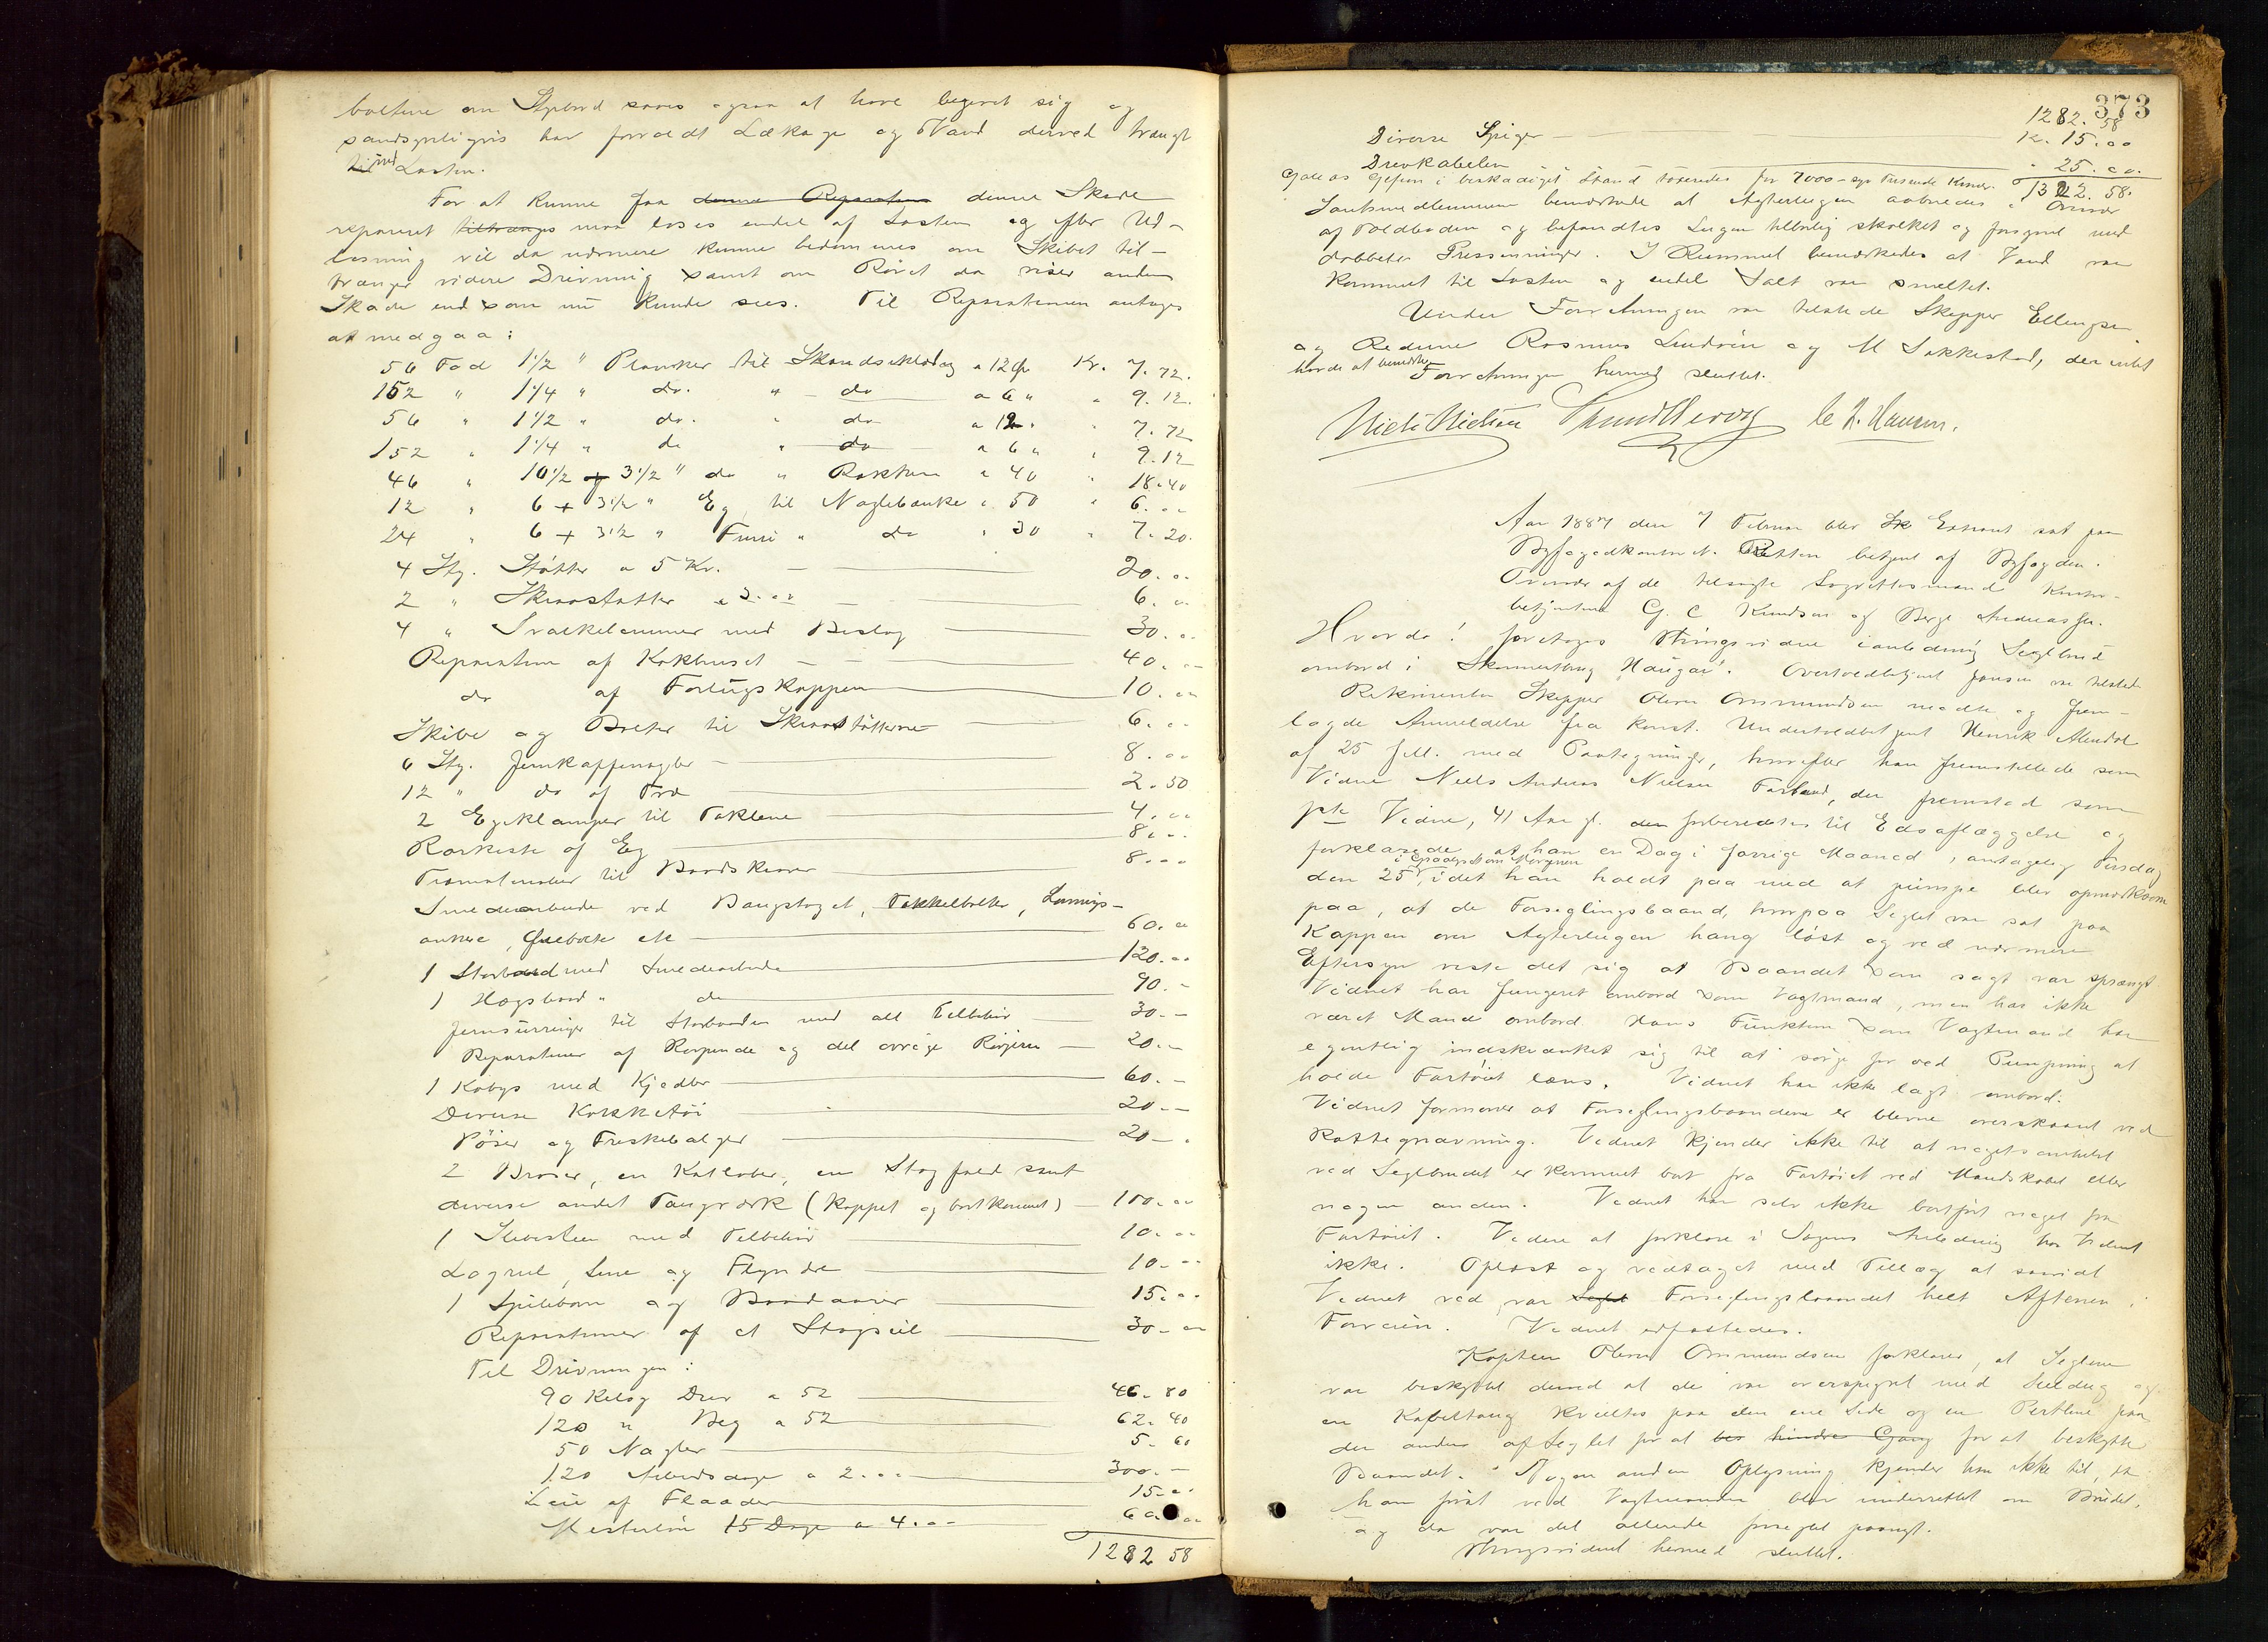 boltene om Styrbord saaes ogsaa at have begivet sig og
sandsynligvis har forvoldt Lækage og Vand derved trængt
ind Lasten.
For at kunne faa denne Reparation denne Skade
repareret tiltrænges maa losses endel af Lasten og efter Ud-
losning vil da nærmere kunne bedømmes om Skibet til-
trænger videre Drivning samt om Roret da viser anden
Skade end som nu kunde sees. Til Reparationen antages
at medgaa:
56 Fod 1 1/2 " Planker til Skandseklædng a 12 Ø Kr. 7.72.
152 " 1 1/4 " do. " do a 6 " " 9.12.
56 " 1 1/2 " do. " do a 12. " 7.72
152 " 1 1/4 " do " do a 6 " " 9.12
46 " 10 1/2 + 3 1/2 " do " Rækken a 40 " 18.40
12 " 6 + 3 1/2 " Eg til Naglebænke a 50 " 6.00
24 " 6 + 3 1/2 " Furu " do " 30 " 7.20.
4 Stg. Støtter a 5 Kr. 20.00
2 " Støtter a 3.00 6.00
4 " med Beslag 30.00
Reparation af Kokhuset 40.00
do af Forlugskappen 10.00
Skibe og Bolter til 6.00
6 Stg. Jernkoffenagler 8.00
12 " do af Træ 2.50
2 Egeklamper til Taklene 4.00
Rorkiste af Eg 8.00
Træmaterialer til 8.00
Smedearbeide ved Baugstaget, Takkelbolter, Lænsnings-
ankre, Øiebolte etc 60.00
1 Storbaad med Smedearbeide 120.00
1 Hægsbaad " do 90.-
Jernsurringer til Storbaaden med alt Tilbehør 30.-
Reparationer af Rorpinde og det øvrige Rorjern 20.-
1 Kabys med Kjedler 60.-
Diverse Kokketøi 20.-
Pøser og Friskebalger 20.-
2 Braser, en Katløber, en Stagfald samt
diverse andet Taugværk (kappet og bortkommet) 100.00
1 Slibesten med Tilbehør 10.00
Logrul, Line og Flyndre 10.00
1 Spilebom og Baadaarer 15.00
Reparationer af et Stagseil 30.00
Til Drivningen:
90 Kilog Drev a 52 46.80
120 " Beg a 52 62.40
50 Nagler 5.60
120 Arbeidsdage a 2.00 300.-
Leie af Flaader 15.00
Mesterløn 15 Dage a 4.00 60.00
1282 58
373
1282.58
Diverse Spiger Kr. 15.00
Drevkabelen " 25.00.
Galeas Gefion i beskadiget Stand taxeredes for 7000 - syv Tusende Kroner. 1322.58.
bemærkede at Agterlugen aabnedes i Overvær
af Toldboden og befandtes Lugen tilbørlig skalket og forsynet med
dobbelte Presenninger. I Rummet bemærkedes at Vand var
kommet til Lasten og endel Salt var smeltet.
Under Forretningen var tilstede Skipper Ellingsen
og Rederne Rasmus og M Sokkestad, der intet
havde at bemærke
Forretningen hermed sluttet.
Niels Nielsen C. N. Hansen.
Aar 1887 den 7 Februar blev Sk Extraret sat paa
Byfogedkontoret. Retten betjent af Byfogden.
Overvær af de tilsagte Lagrettesmænd Kontor-
betjentene G. C Knudsen og Berge Andreassen.
Hvorda! foretoges Thingsvidne i anledning Seglbrud
ombord i Skonnertbrig "Haugar". Overtoldbetjent Jansen var tilstede
Rekvirenten Skipper Oluf Ommundsen mødte og frem-
lagde Anmeldelse fra konst. Undertoldbetjent Henrik
af 25 f.M. med Paategninger, hvorefter han fremstillede som
Vidne Niels Andreas Nielsen Førland, der fremstod som
1ste Vidne, 41 Aar gl. der forberedtes til Edsaflæggelse og
forklarede, at han en Dag i forrige Maaned, antagelig Tirsdag
den 25, i Graalysningen om Morgenen idet han holdt paa med at pumpe blev opmærksom
paa, at de Forseglingsbaand, hvorpaa Seglet var sat paa
Kappen over Agterlugen hang løst og ved nærmere
Eftersyn viste det sig at Baandet som sagt var sprængt
Vidnet har fungeret ombord som Vagtmand, men har ikke
været Mand ombord. Hans Funktion som Vagtmand har
egentlig indskrænket sig til at sørge for ved Pumpning at
holde Fartøiet læns. Vidnet har ikke lagt ombord.
Vidnet formener at Forseglingsbaandene er blevne overskaaret ved
Rottegnavning. Vidnet kjender ikke til at nogetsomhelst
ved Seglbrudet er kommet bort fra Fartøiet ved Mandskabet eller
nogen anden. Vidnet har selv ikke bortført noget fra
Fartøiet. Videre at forklare i Sagens Anledning har Vidnet
ikke. Oplæst og vedtaget med Tillæg at saavidt
Vidnet ved var Seglet Forseglingsbaandet helt Aftenen i
Forveien. Vidnet edfæstedes.
Kaptein Oluf Ommundsen forklarer, at Seglene
var beskyttet derved at de var overspigret med Seildug og
en Kabeltaug kveiltes paa den ene Side og en Pertline paa
den anden af Seglet for at hindre Gang for at beskytte
Baandet. Nogen anden Oplysning kjender han ikke til, da
han først ved Vagtmanden blev underrettet om Brudet,
og da var det allerede forseglet paanyt.
Thingsvidnet hermed sluttet.